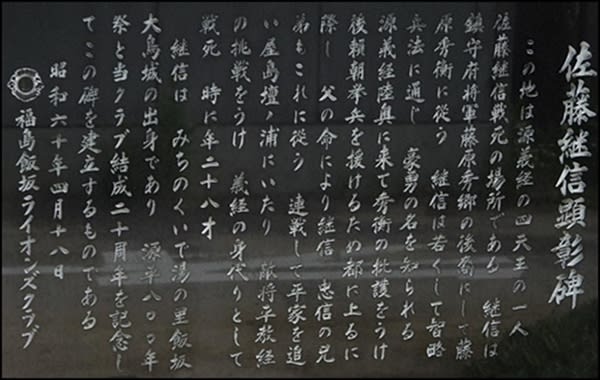 佐藤継信顕彰碑
この地は源義経の四天王の一人
佐藤継信戦死の場所である 継信は
鎮守府将軍藤原秀郷の後裔にして藤
原秀衡に従う 継信は若くして智略
兵法に通し 豪勇の名を知られる
源義経陸奥に来て秀衡の庇護をうけ
後頼朝挙兵を援けるため都に上るに
際し 父の命により継信 忠信の兄
弟もこれに従う 連戦して平家を追
い屋島壇ノ浦にいたり 敵将平教経
の挑戦をうけ 義経の身代りとして
戦死 時に年二十八才
継信は みちのくいで湯の里飯坂
大鳥城の出身であり 源平八〇〇年
祭と当クラブ結成二十周年を記念し
てこの碑を建立するものである
昭和六十年四月十八日
福島飯坂ライオンズクラブ